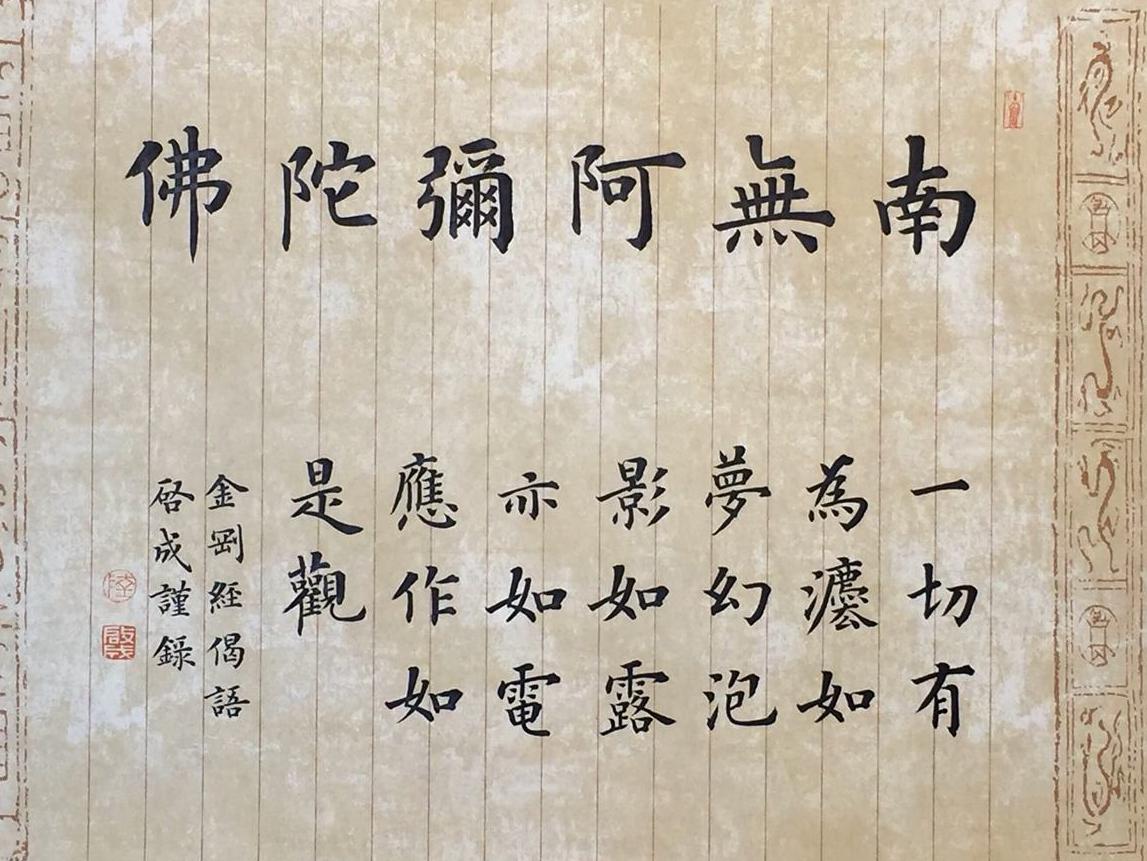 南無阿彌陀佛
一切有
為灋如
夢幻泡
影如露
亦如電
應作如
是觀
金剛經偈語
啓成謹錄
陸